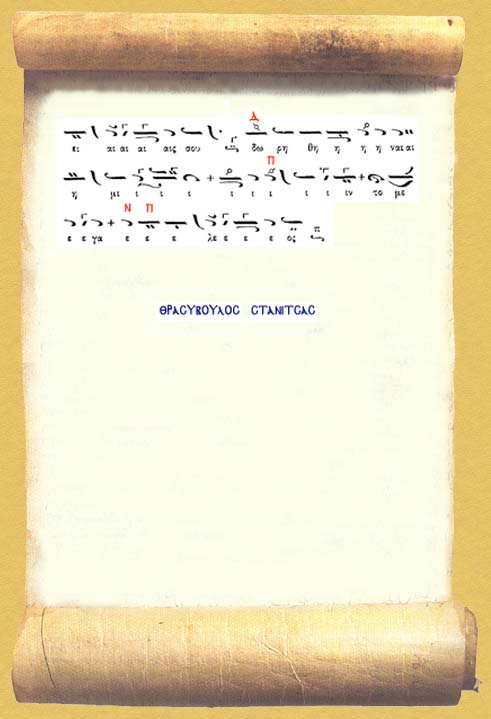 Δ
ει αι αι αι αις σου δω ρη θη η η η ναι αι
Π
η μι ι ι ι ι ι ι ι ιν το με
Ν Π
ε ε γα ε ε ε λε ε ε ε ος
ΘΡΑΣΥΒΟΥΛΟΣ ΣΤΑΝΙΤΣΑΣ